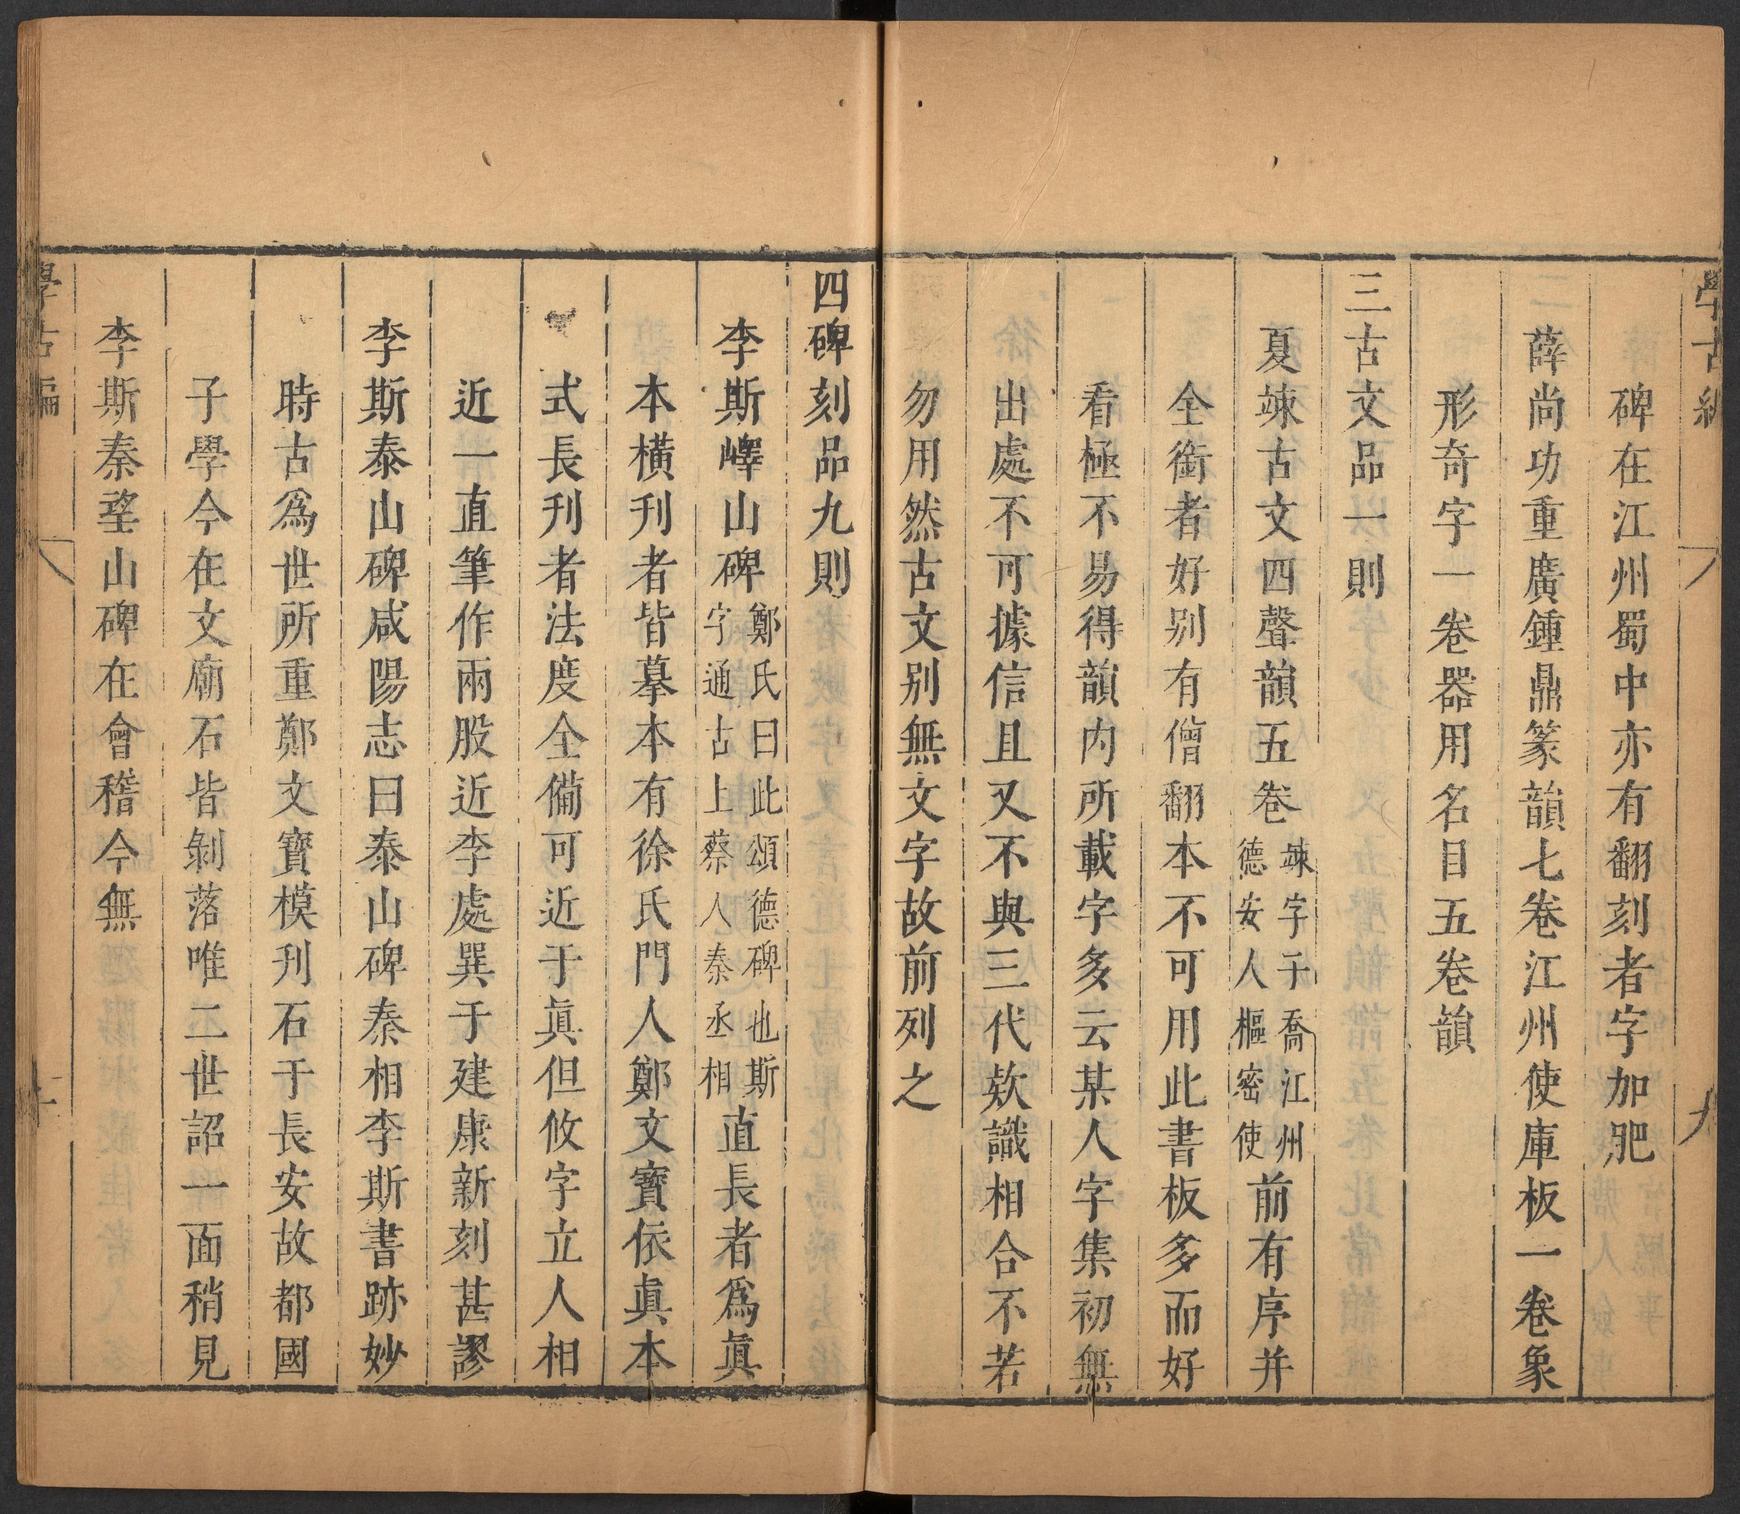 碑在江州蜀中亦有翻刻者字加肥
薛尚功重廣鍾鼎篆韻七卷江州使庫板一卷象
形奇字一卷器用名目五卷韻
三古文品一則
夏竦古文四聲韻五卷竦字子喬江州德安人樞密使前有序并
全銜者好别有僧翻本不可用此書板多而好
看極不易得韻内所載字多云某人字集初無
出處不可據信且又不與三代欵識相合不若
勿用然古文别無文字故前列之
四碑刻品九則
李斯嶧山碑鄭氏曰此頌德碑也斯字通古上蔡人秦丞相直長者爲眞
本橫刋者皆摹本有徐氏門人鄭文寳依眞本
式長刋者法度全備可近于眞但攸字立人相
近一直筆作兩股近李處巽于建康新刻甚謬
李斯泰山碑咸陽志曰泰山碑秦相李斯書跡妙
時古爲世所重鄭文寳模刋石于長安故都國
子學今在文廟石皆剝落唯二世詔一面稍見
李斯秦望山碑在會稽今無
學古編